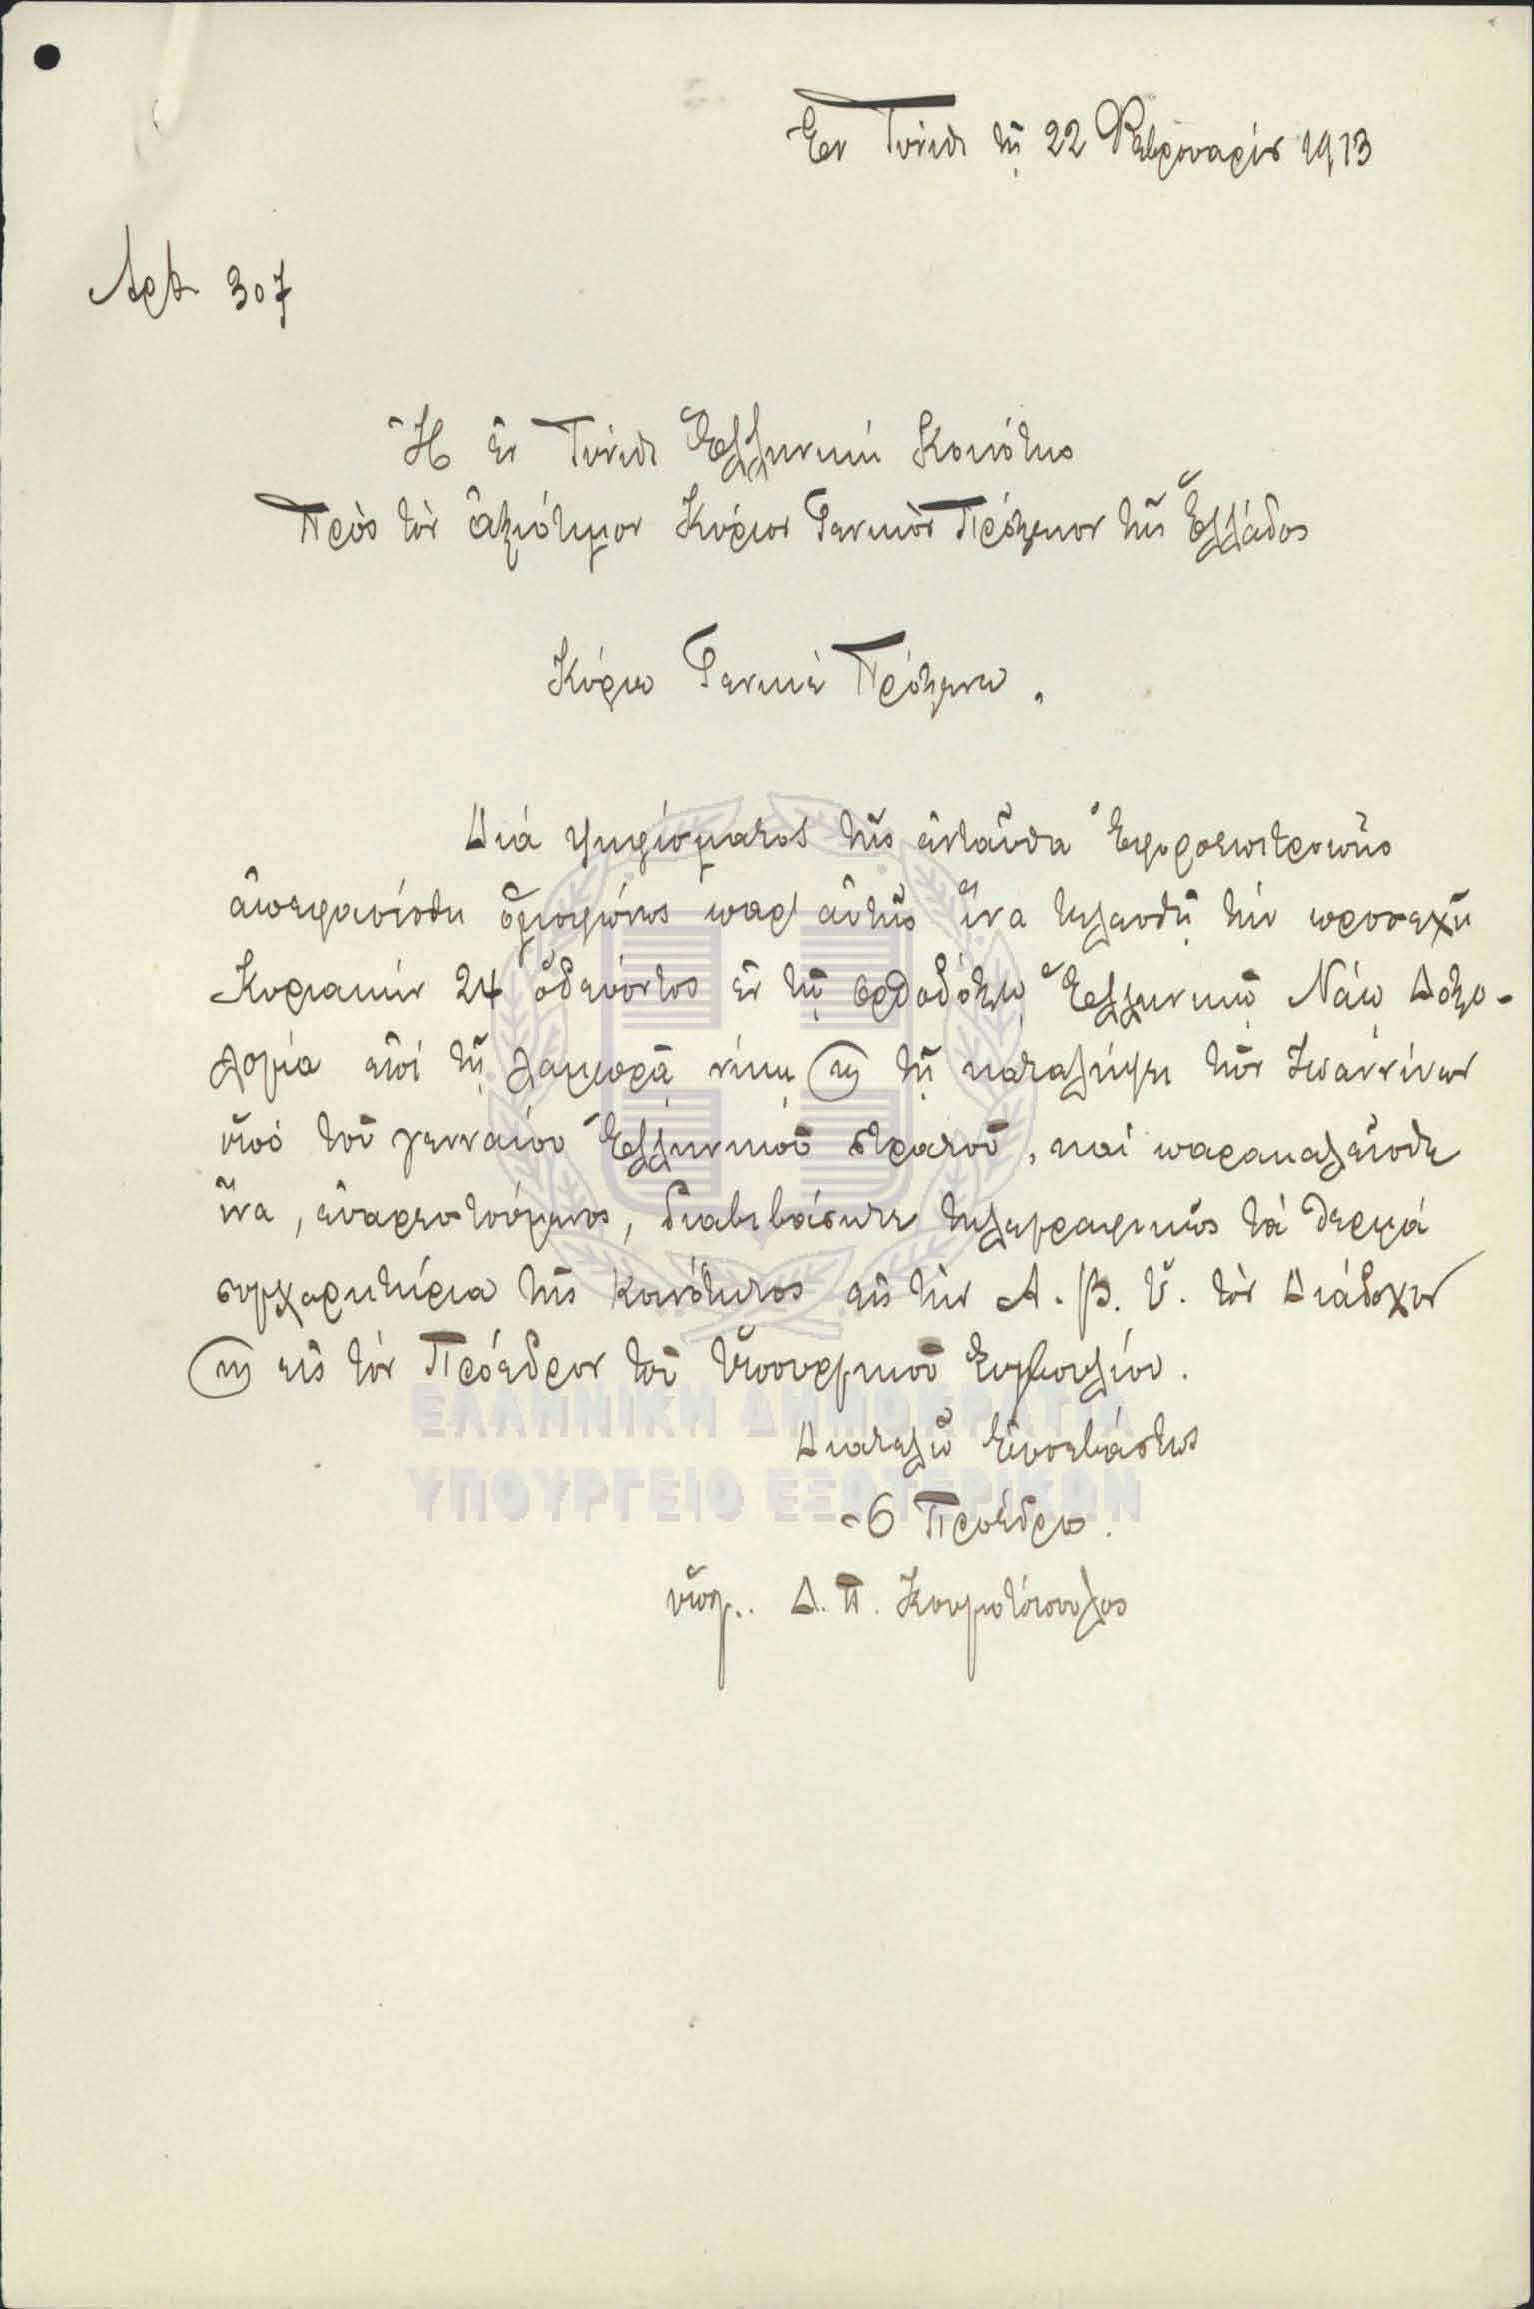 Ἐν Τύνιδι τῇ 22 Φεβρουαρίου 1913
Ἀρθ 307
Ἡ ἐν Τύνιδι Ἑλληνικὴ Κοινότης
Πρὸς τὸν ἀξιότιμον Κύριον Γενικὸν Πρόξενον τῆς Ἑλλάδος
Κύριε Γενικὲ Πρόξενε,
Διά ψηφίσματος τῆς ἐνταῦθα Ἐφοροεπιτροπῆς
ἀπεφασίσθη ὁμοφώνως παρ' αὐτῆς ἵνα τελεσθῇ τὴν προσεχῆ
Κυριακήν 24 ὁδεύοντος ἐν τῷ ὀρθοδόξῳ Ἑλληνικῷ Ναῷ Δοξο-
λογία ἐπί τῇ λαμπρᾷ νίκῃ κ τῇ καταλήψει τῶν Ἰωαννίνων
ὑπό τοῦ γενναίου Ἑλληνικοῦ στρατοῦ, καί παρακαλεῖσθε
ἵνα, εὐαρεστούμενος, διαβιβάσητε τηλεγραφικῶς τά θερμά
συγχαρητήρια τῆς Κοινότητος εἰς τὴν Α. Β. Υ. τὸν Διάδοχον
κ εἰς τόν Πρόεδρον τοῦ Ὑπουργικοῦ Συμβουλίου.
Διατελῶ Εὐσεβάστως
Ὁ Πρόεδρος.
ὑπογ.. Δ. Π. Κουμοτόπουλος
ΕΛΛΗΝΙΚΗ ΔΗΜΟΚΡΑΤΙΑ
ΥΠΟΥΡΓΕΙΟ ΕΞΩΤΕΡΙΚΩΝ